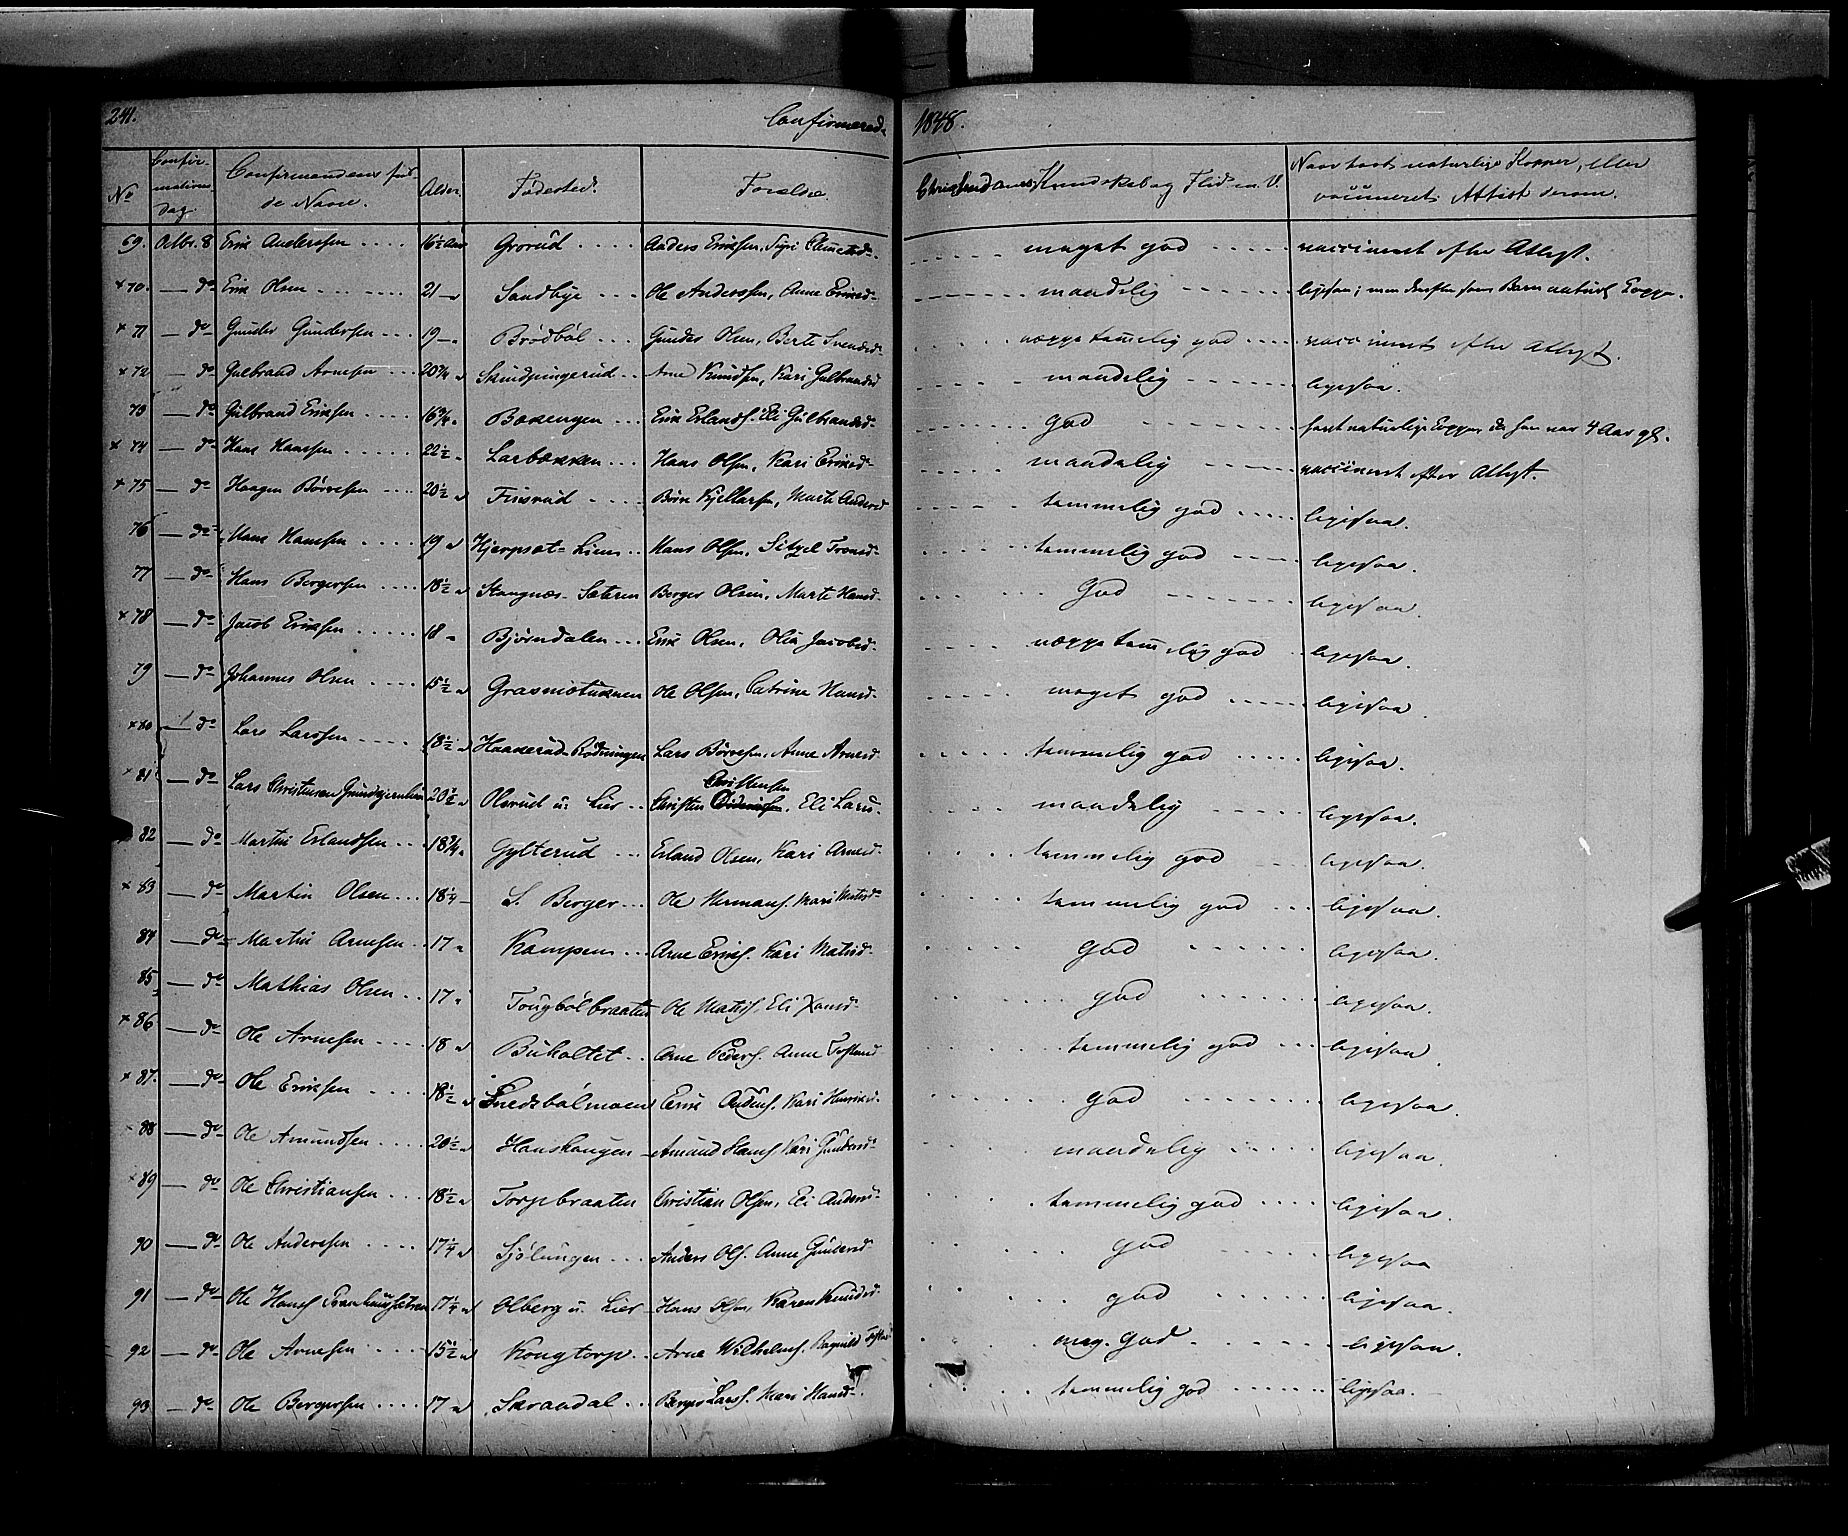 241. Confirmerede 1848.
No Confirmations dag Confirmandens fulde Navne. Alder. Fødested. Forældre Christendoms Kundskab og Flid m. V. Naar havt naturlige Kopper, eller vaccineret Attest derom.
69. Octbr. 8 Erik Anderssen 16½ Aar Grorud Anders Eriksen, Siri meget god vaccineret efter Attest.
×70. — do Erik Olsen 21 " Sandbye Ole Anderssen, Anne Eriksd. maadelig ligesaa; men derefter som Barn naturl. Kopper.
×71 — do Gunder Gundersen 19 " Brødbøl Gunder Olsen, Berte Svendsd. neppe temmelig god vaccineret efter Attest.
×72 — do Gulbrand Arnesen 20¾ " Skindpungerud Arne Knudsen, Kari Gulbrandsd. maadelig ligesaa.
73 — do Gulbrand Eriksen 16¾ " Bakengen Erik Erlands. Eli Gulbrandsd. god havt naturlige Kopper da han var 4 Aar gl.
×74 — do Hans Hanssen 22½ " Larbækken Hans Olsen, Kari Eriksd. maadelig vaccineret efter Attest.
×75 — do Haagen Børresen 20½ " Finsrud Børre Kjellersen, Marte Andersd. temmelig god ligesaa.
76 — do Hans Hanssen 19 " Hjerpset-Lien Hans Olsen, Sitzel Tronsd. temmelig god ligesaa.
77 — do Hans Bergersen 18½ " Stangnæs-Sæteren Berger Olsen, Marte Hansd. God ligesaa.
×78 — do Jacob Eriksen 18 " Bjørndalen Erik Olsen, Olia Jacobsd. neppe temmelig god ligesaa.
79 — do Johannes Olsen 15½ " Grasmotuknen Ole Olsen, Catrine Hansd. meget god ligesaa.
×80 — do Lars Larssen 18½ " Haakerud-Rødningen Lars Børresen, Anne Arnesd. temmelig god ligesaa.
×81 — do Lars Christensen 20½ " Olsrud u. Lier Christen Christensen, Eli Larsd. maadelig ligesaa.
82 — do Martin Erlandsen 18¾ " Gylterud Erland Olsen, Kari Arnesd. temmelig god ligesaa.
×83 — do Martin Olsen 18¼ " S. Berger Ole Hermans. Mari Matisd. temmelig god ligesaa.
84 — do Martin Arnesen 17 " Kampen Arne Eriks. Kari Matisd. god ligesaa.
85 — do Mathias Olsen 17 " Tougbølbraaten Ole Matis. Eli Hansd. god ligesaa.
×86 — do Ole Arnesen 18 " Buholtet Arne Peders. Anne temmelig god ligesaa.
×87. — do Ole Eriksen 18½ " Snedsbølmoen Erik Anders. Kari Henriksd. god ligesaa.
88 — do Ole Amundsen 20½ " Haushaugen Amund Hans. Kari Gundersd. maadelig ligesaa.
×89 — do Ole Christiansen 18½ " Torpebraaten Christian Olsen, Eli Andersd. temmelig god ligesaa.
90 — do Ole Anderssen 17¼ " Sjølungen Anders Ols. Anne Gundersd. god ligesaa
91 — do Ole Hans. 17¼ " Olberg u. Lier Hans Olsen, Karen Knudsd. god ligesaa.
92 — do Ole Arnesen 15½ " Kongtorp Arne Wilhelms. Ragnild meg. God ligesaa.
93 — do Ole Bergersen 17 " Skrandal Berger Lars. Mari Hansd. temmelig god ligesaa.